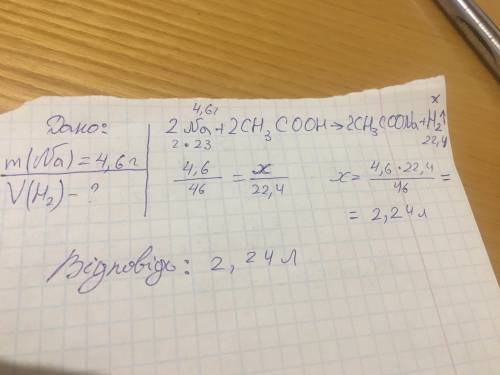 Дано:
m(Na) = 4,6 г
V(H₂) - ?
4,6г x
2Na + 2CH₃COOH → 2CH₃COONa + H₂↑
2·23 22,4
4,6/46 = x/22,4 x = 4,6·22,4/46 =
= 2,24 л
Відповідь: 2,24 л